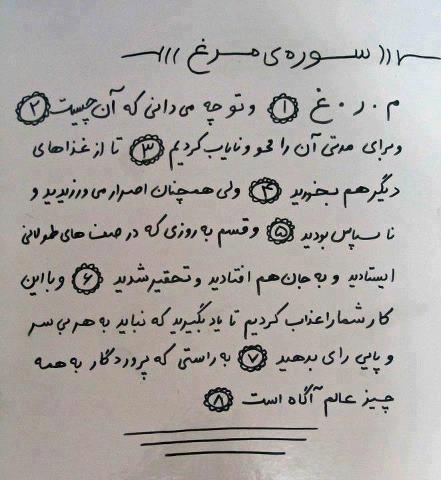 سوره‌ی مرغ
م . ر . غ ۱ و تو چه می دانی که آن چیست ۲
و برای مدتی آن را محو و نایاب کردیم ۳ تا از غذاهای
دیگر هم بخورید ۴ ولی همچنان اصرار می ورزیدید و
نا سپاس بودید ۵ و قسم به روزی که در صف های طولانی
ایستادید و به جان هم افتادید و تحقیر شدید ۶ و با این
کار شما را عذاب کردیم تا یاد بگیرید که نباید به هر بی سر
و پایی رای بدهید ۷ به راستی که پروردگار به همه
چیز عالم آگاه است ۸